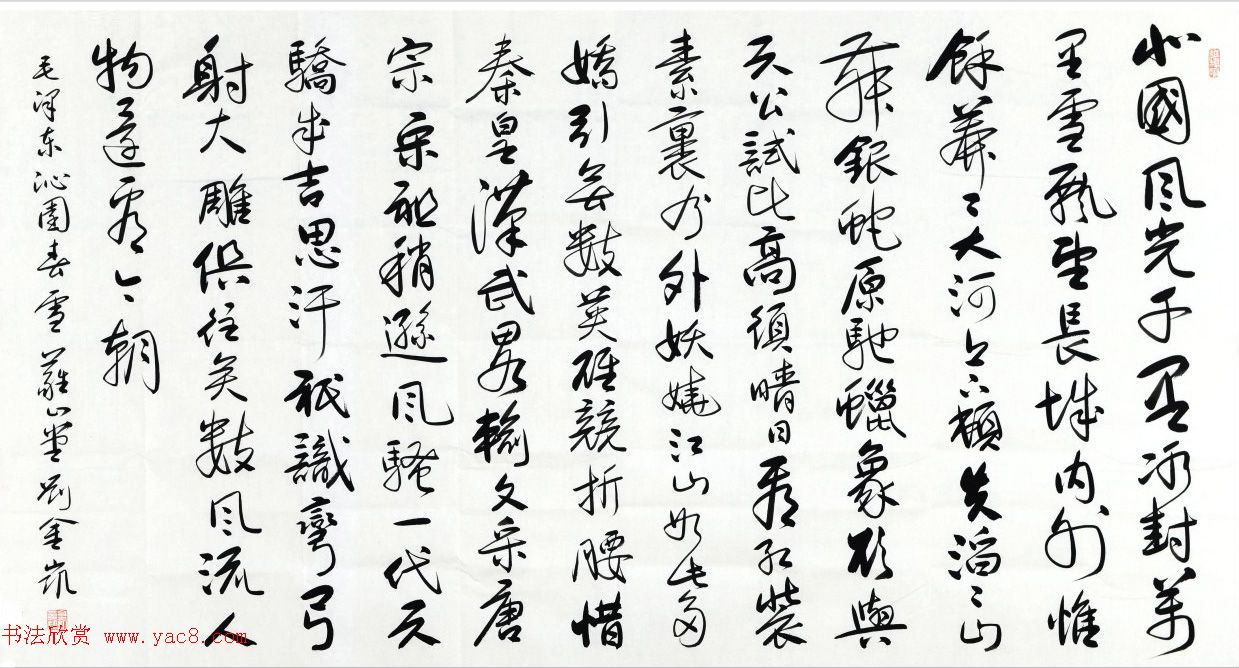 北國風光千里冰封萬
里雪飄望長城内外惟
餘莽〻大河上下頓失滔〻山
舞銀蛇原馳蠟象欲與
天公試比高須晴日看紅裝
素裹分外妖嬈江山如此多
嬌引無數英雄競折腰惜
秦皇漢武略輸文采唐
宗宋祖稍遜風騷一代天
驕成吉思汗祇識彎弓
射大雕俱往矣數風流人
物還看今朝
毛泽东沁園春雪山堂劉金凱
书法欣赏 www.yac8.com